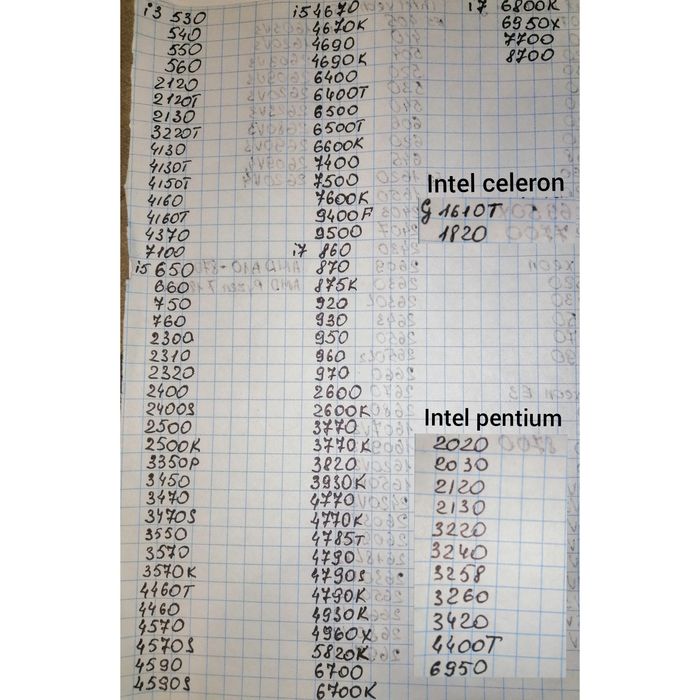 i3 530
540
550
560
2120
2120T
2130
3220T
4130
4130T
4150T
4160
4160T
4370
7100
i5 650
660
750
760
2300
2310
2320
2400
2400S
2500
2500K
3350P
3450
3470
3470S
3550
3570
3570K
4460T
4460
4570
4570S
4590
4590S
i5 4670
4670K
4690
4690K
6400
6400T
6500
6500T
6600K
7400
7500
7600K
9400F
9500
i7 860
870
875K
920
930
950
960
970
2600
2600K
3770
3770K
3820
3930K
4770
4770K
4785T
4790
4790S
4790K
4930K
4960X
5820K
6700
6700K
i7 6800K
6950X
7700
8700
Intel celeron
G 1610T
1820
Intel pentium
2020
2030
2120
2130
3220
3240
3258
3260
3420
4400T
6950